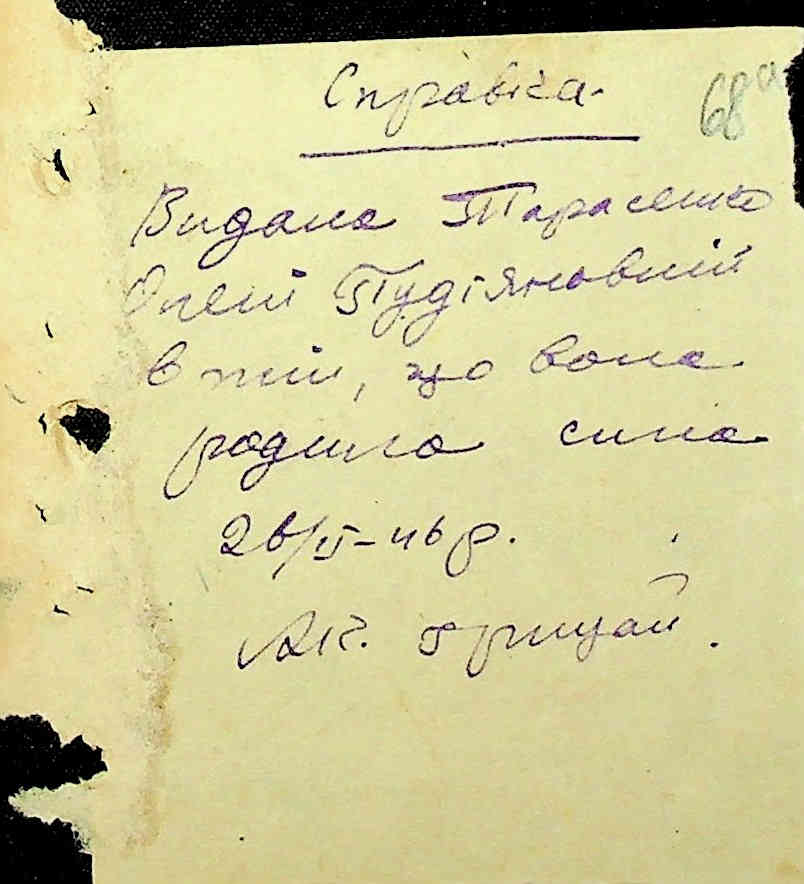 Справка.
68а
Видана Тарасенко
Олені
в тім, що вона
родила сина
26/II-46 р.
Ак. Грицай.